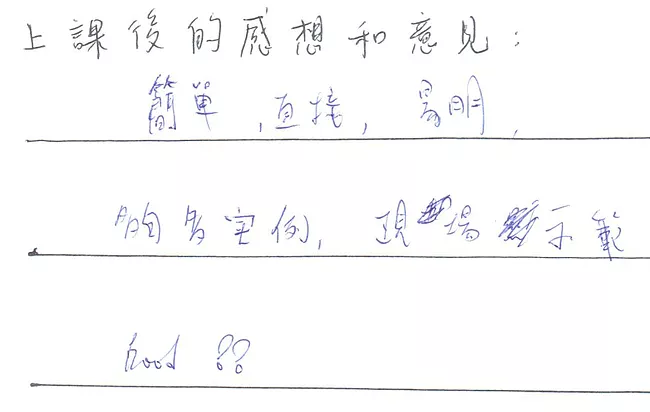 上課後的感想和意見：
簡單，直接，易明，
夠多实例，現場示範
Good ??